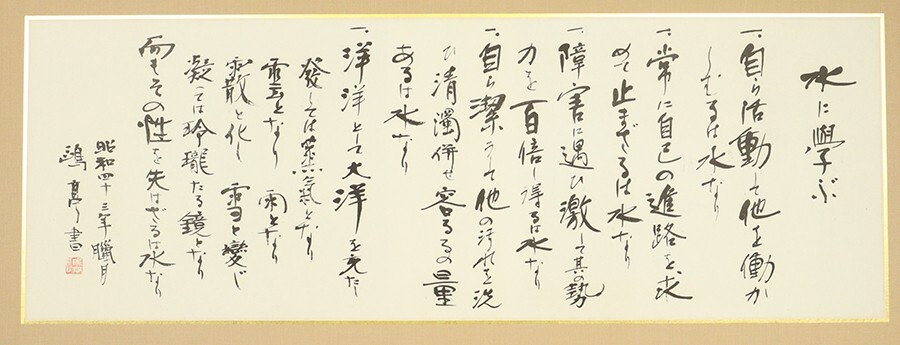 水に學ぶ
一、自ら活動して他を働か
しむるは水なり
一、常に自己の進路を求
めて止まざるは水なり
一、障害に遇ひ激して其の勢
力を百倍し得るは水なり
一、自ら潔うして他の汚れを洗
ひ清濁併せ容るるの量
あるは水なり
一、洋洋として大洋を充たし
發しては蒸氣となり
雲となり雨となり
霰と化し雪と變じ
凝っては玲瓏たる鏡となり
而もその性を失はざるは水なり
昭和四十三年臘月
書